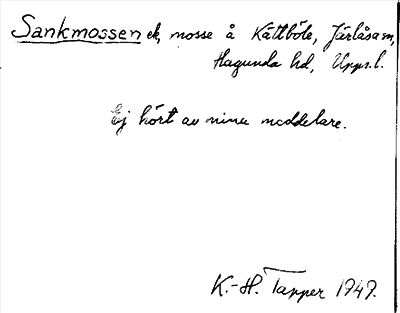 Sankmossen ek, mosse å Kättböle, Järlåsa sn,
Hagunda hd, Upps. l.
Ej hört av mina meddelare.
K.-H. Tapper 1949.